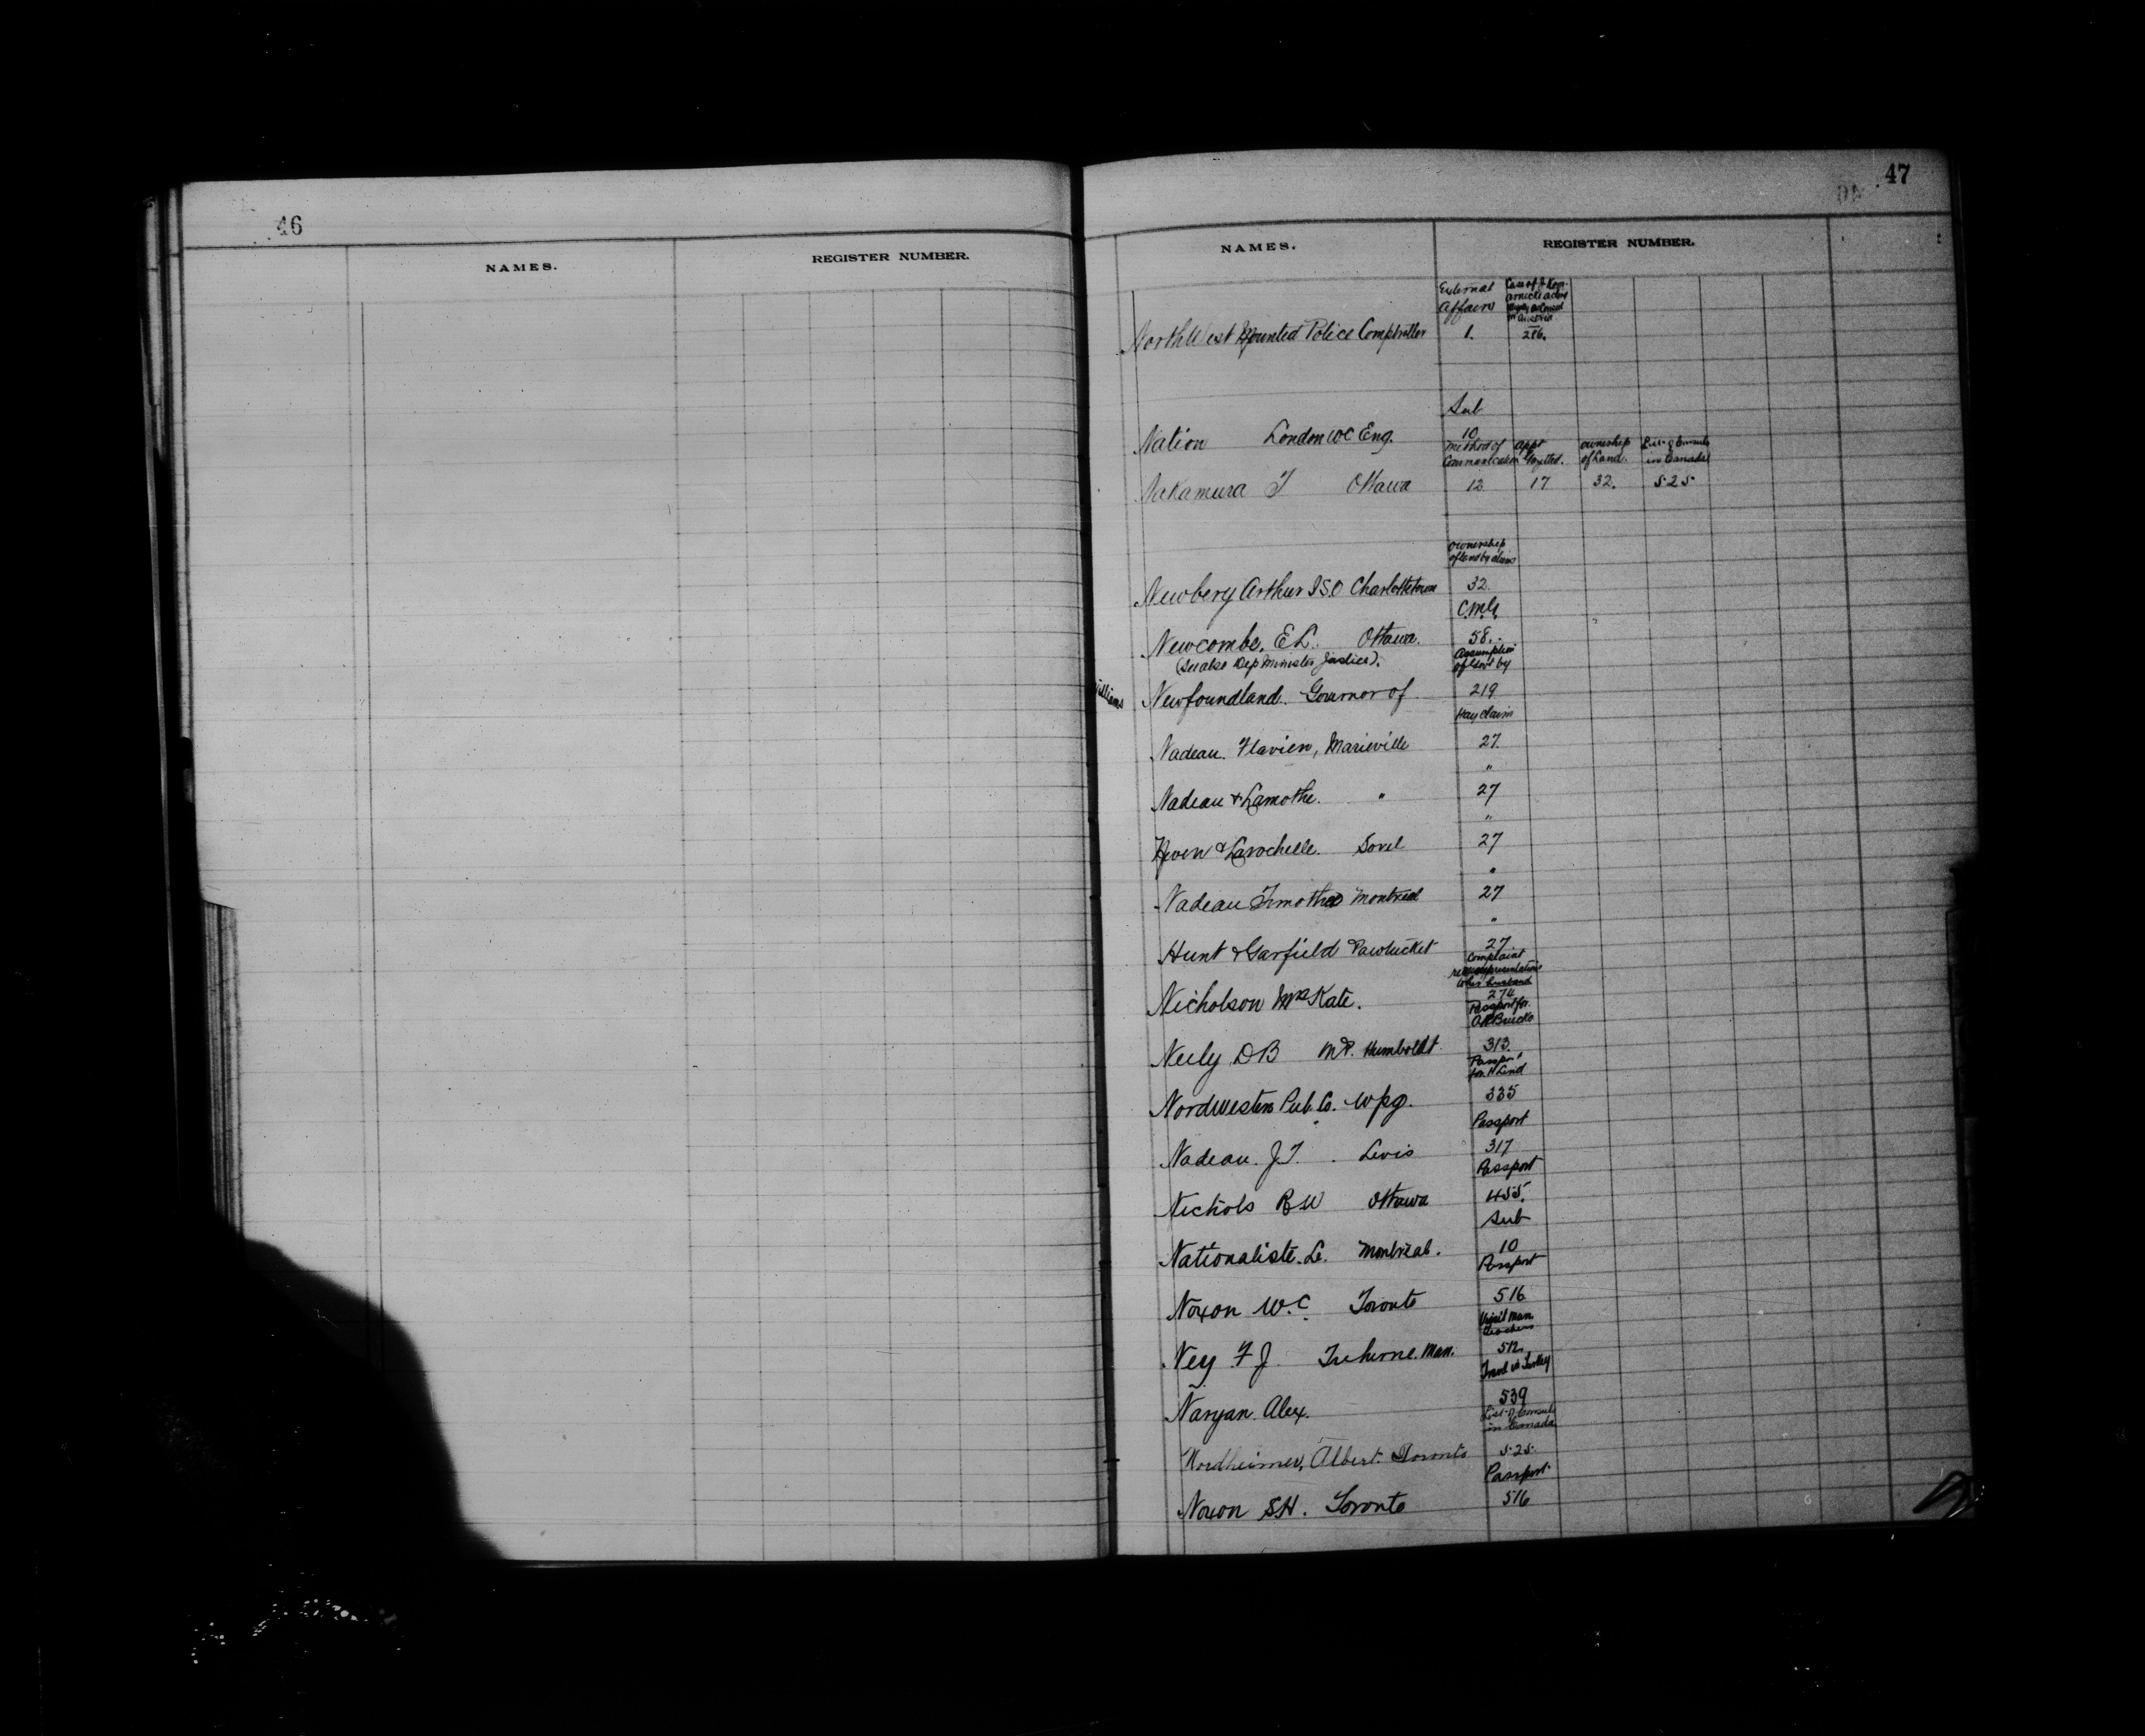 46
NAMES. REGISTER NUMBER.
47
NAMES. REGISTER NUMBER.
External Affairs
NorthWest Mounted Police Comptroller 1. 216.
Sub
Nation London WC Eng. 10
Method of Communication Appt Gazetted. Ownership of Land. List of Consuls in Canada
Nakamura T Ottawa 12 17 32. 525
Ownership of land by aliens
Newbery Arthur ISO Charlottetown 32
C.M.G.
Newcombe, E L. Ottawa. 58.
(See also Dep Minister Justice).
Assumption of Govt by
Williams
Newfoundland. Governor of 219
Hay claim
Nadeau. Flavien, Marieville 27.
"
Nadeau & Lamothe. " 27
"
& Larochelle. Sorel 27
"
Nadeau Timothee Montreal 27
"
Hunt & Garfield Pawtucket 27.
Complaint re misrepresentations to her husband
Nicholson Mrs Kate. 274
Passport for
Neely DB MP. Humboldt 313.
Passport for H Lind
Nordwesten Pub. Co. Wpg. 335
Passport
Nadeau. J.T. Levis 317
Passport
Nichols R W Ottawa 455.
Sub
Nationaliste. Le. Montreal. 10
Passport
Noxon W.C. Toronto 516
Visit Man. Teachers
Ney F J Treherne. Man. 512.
Travel in Turkey
Naryan. Alex. 539
List of Consuls in Canada
Nordheimer, Albert. Toronto 525
Passport
Noxon SH. Toronto 516